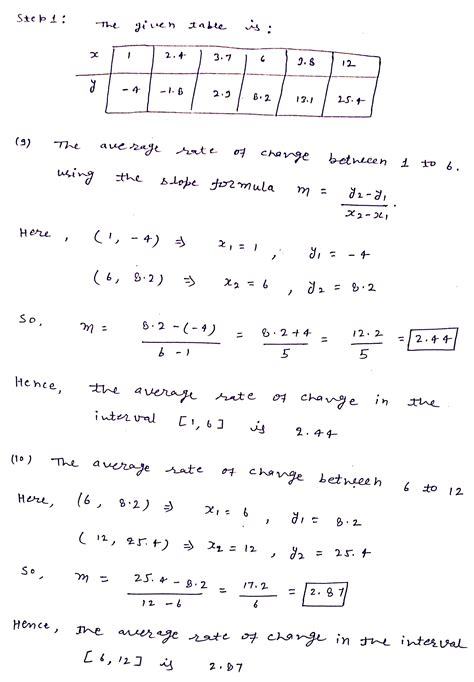 Step 1: The given table is:
x 1 2.4 3.7 6 9.8 12
y -4 -1.8 2.9 8.2 12.1 25.4
(9) The average rate of change between 1 to 6.
using the slope formula m = y₂-y₁/x₂-x₁.
Here, (1, -4) ⇒ x₁=1, y₁ = -4
(6, 8.2) ⇒ x₂=6, y₂ = 8.2
So, m = 8.2-(-4)/6-1 = 8.2+4/5 = 12.2/5 = 2.44
Hence, the average rate of change in the
interval [1,6] is 2.44
(10) The average rate of change between 6 to 12
Here, (6, 8.2) ⇒ x₁=6, y₁ = 8.2
(12, 25.4) ⇒ x₂=12, y₂ = 25.4
So, m = 25.4-8.2/12-6 = 17.2/6 = 2.87
Hence, the average rate of change in the interval
[6,12] is 2.87